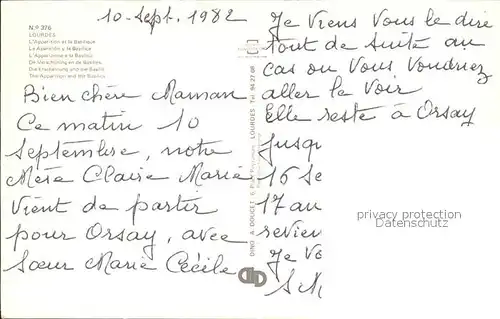 10-Sept. 1982
N.º 376
LOURDES
L'Apparition et la Basilique
La Aparición y la Basílica
L'Apparizione e la Basilica
De Verschijning en de Basiliek
Die Erscheinung und die Basilika
The Apparition and the Basilica
Bien chère Maman
Ce matin 10
septembre, notre
Mère Claire Marie
vient de partir
pour Orsay, avec
Sœur Marie Cécile
DINO & DOUCET LOURDES
Je viens vous le dire
tout de suite au
cas où vous voudriez
aller le voir
Elle reste à Orsay
jusqu
16 Se
17 au
revien
Je Vo
S M
privacy protection
www.oldthing.de